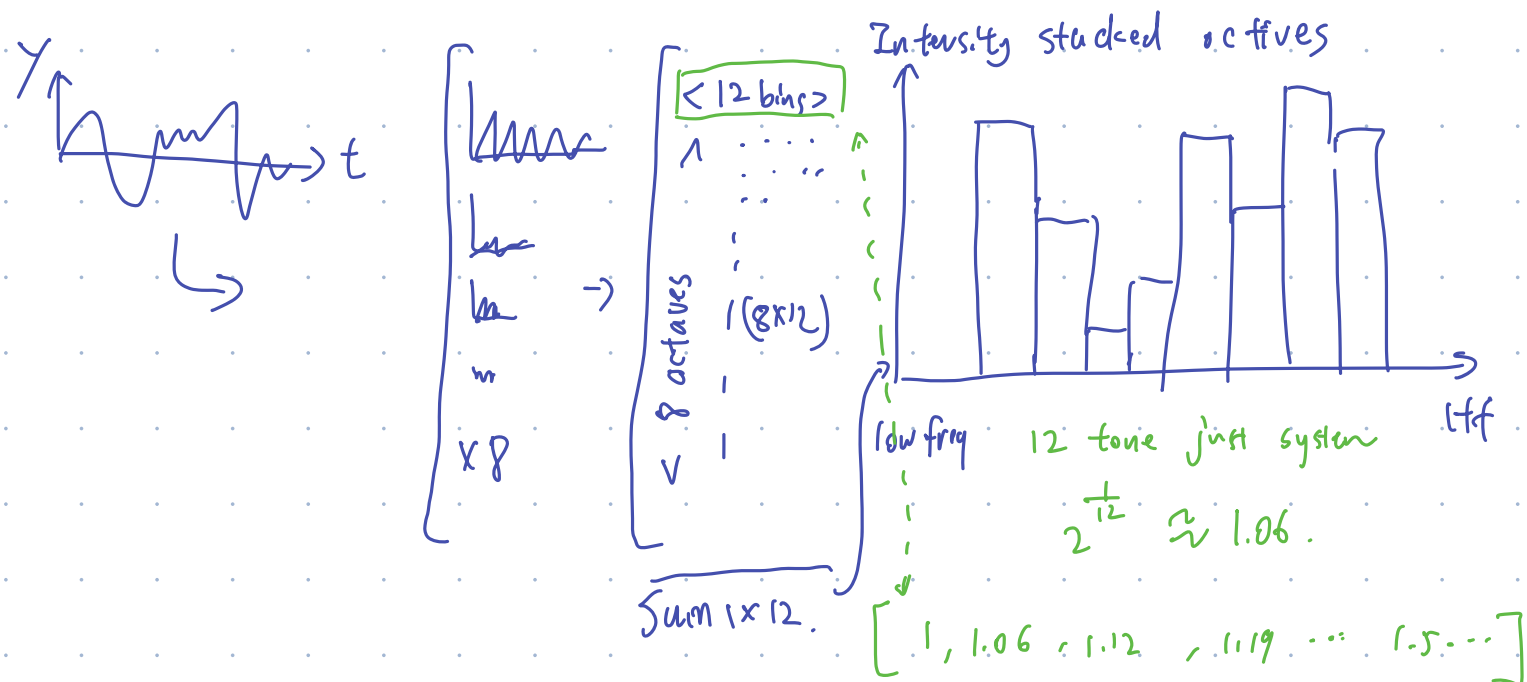 Y
t
x8
<12 bins>
8 octaves
(8x12)
Sum 1x12.
Intensity stacked octives
low freq
12 tone just system
2^1/12 ≈ 1.06.
[1, 1.06, 1.12, 1.19 ... 1.5...]